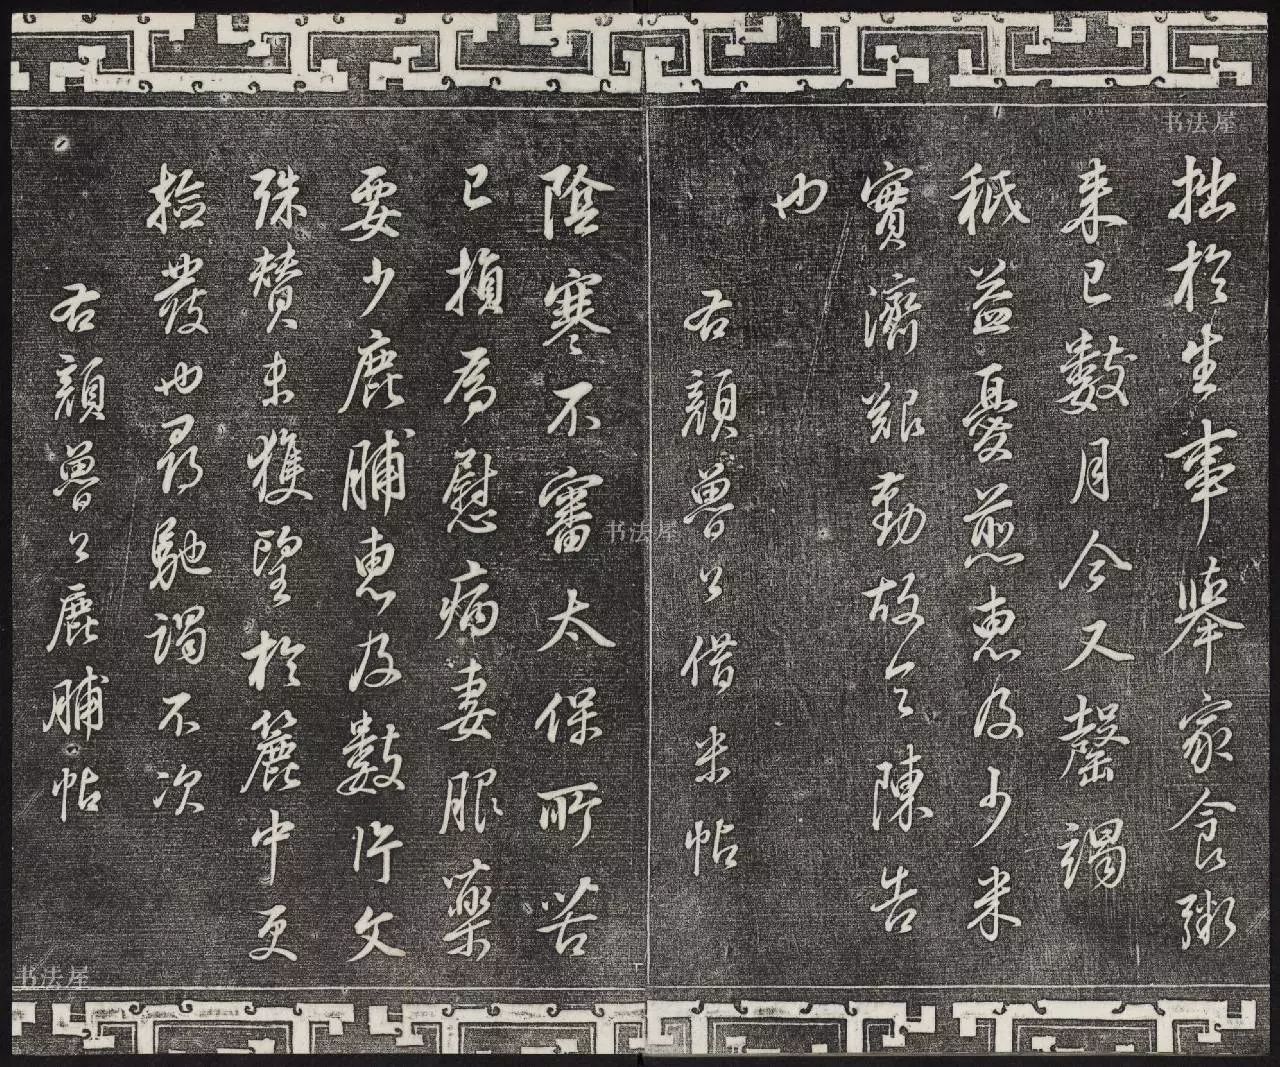 拙於生事舉家食粥
来已數月今又罄竭
秖益憂煎惠及少米
實濟艱勤故令陳告
也
右顔魯公借米帖
陰寒不審太保所苦
已損爲慰病妻服藥
要少鹿脯惠及數片文
殊賛未獲望於簏中更
撿發也尋馳謁不次
右顔魯公鹿脯帖
书法屋
书法屋
书法屋